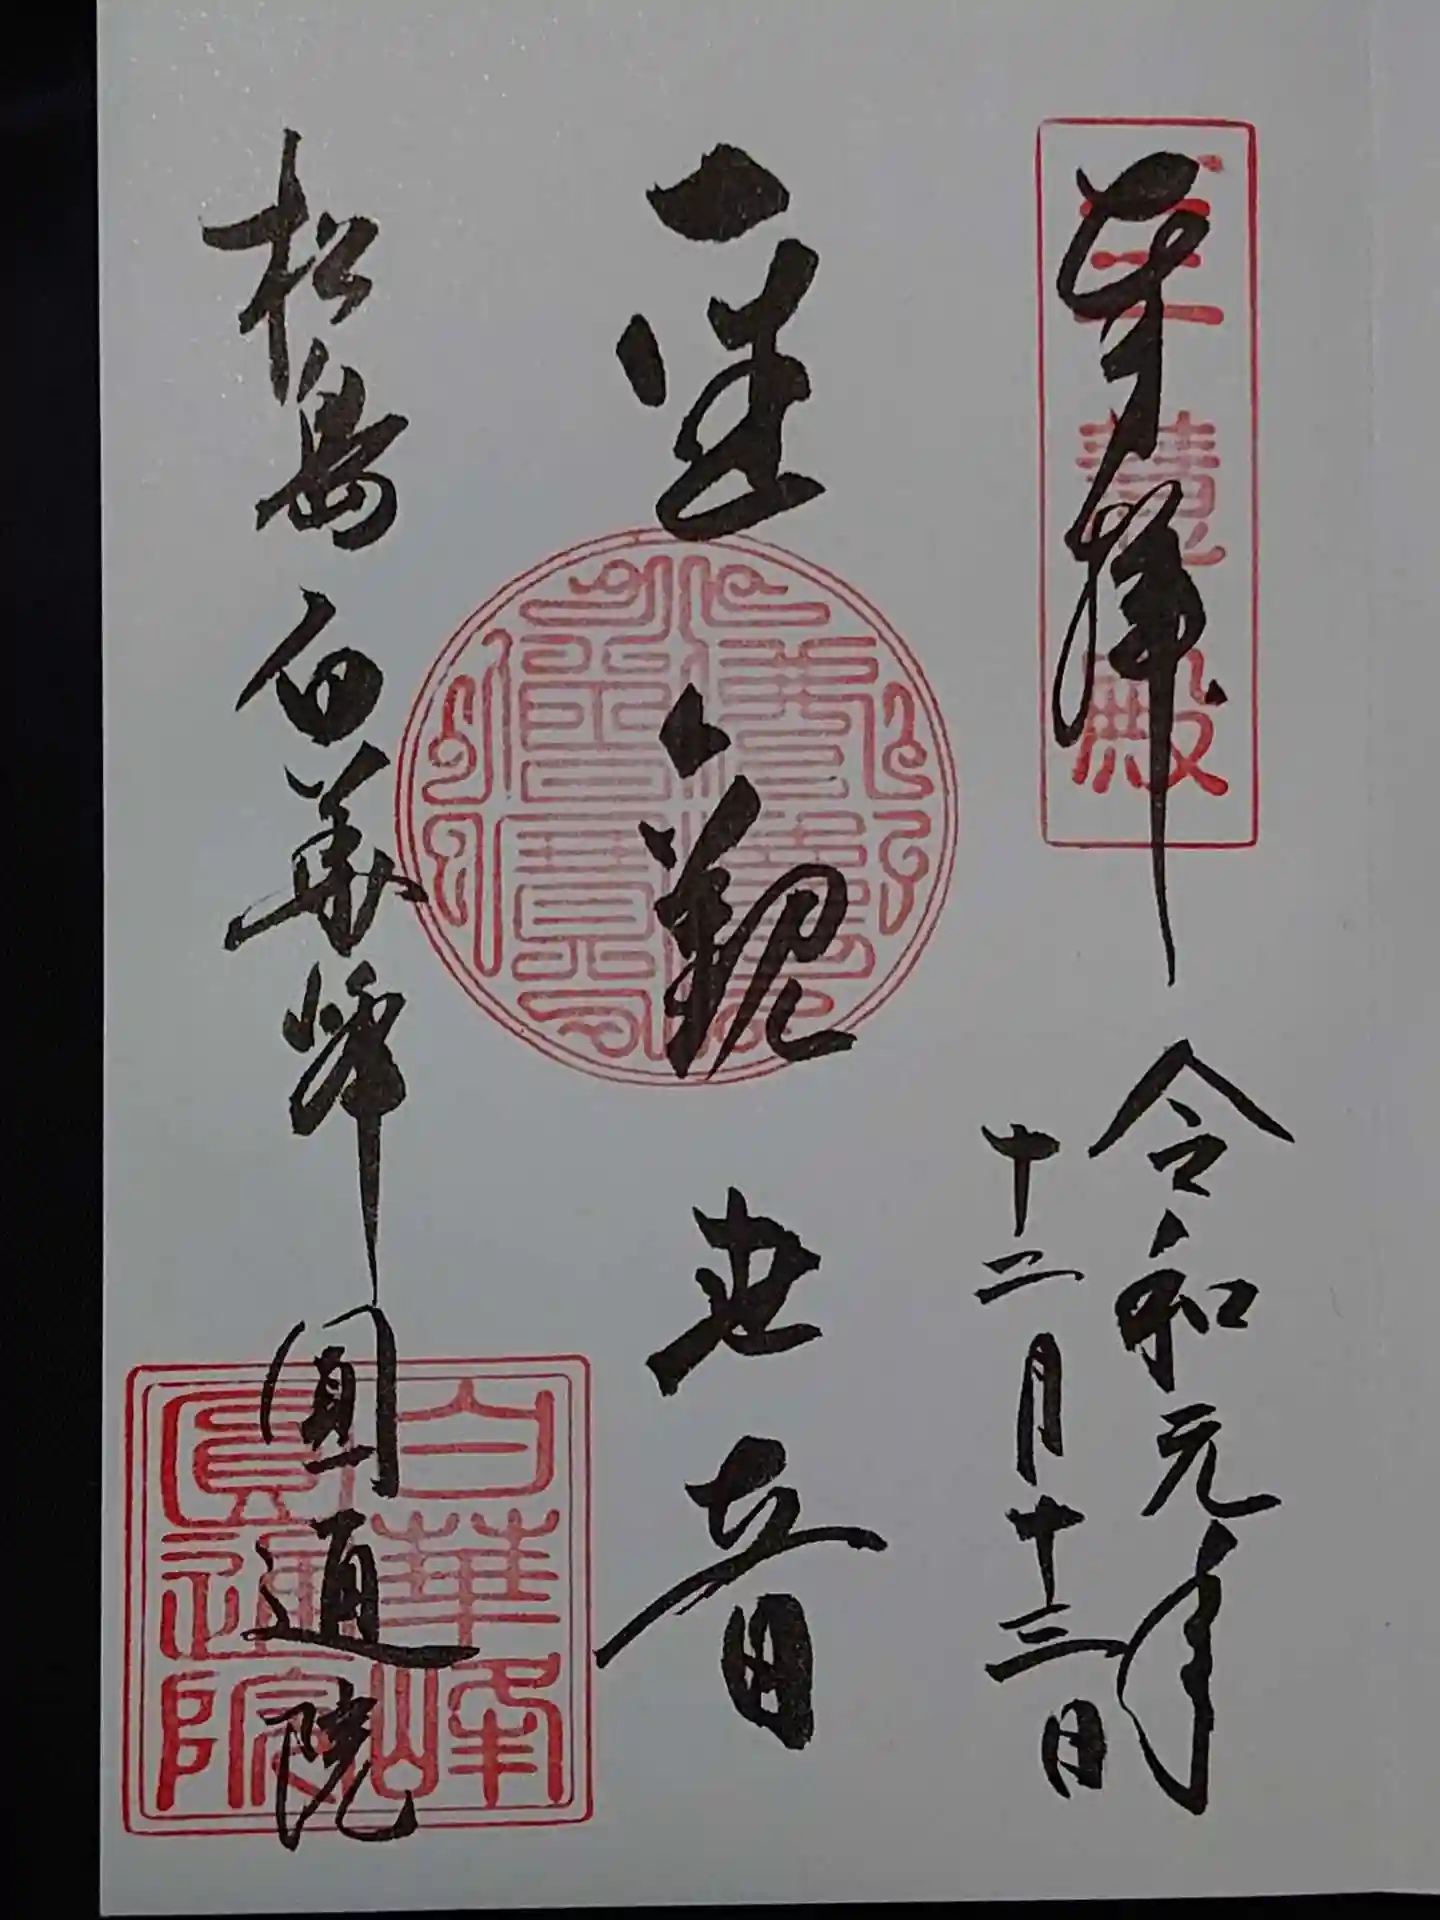 奉拝
三慧殿
令和元年
十二月十三日
聖観世音
佛法僧寶
松島白華峰圓通院
白華峰
圓通院